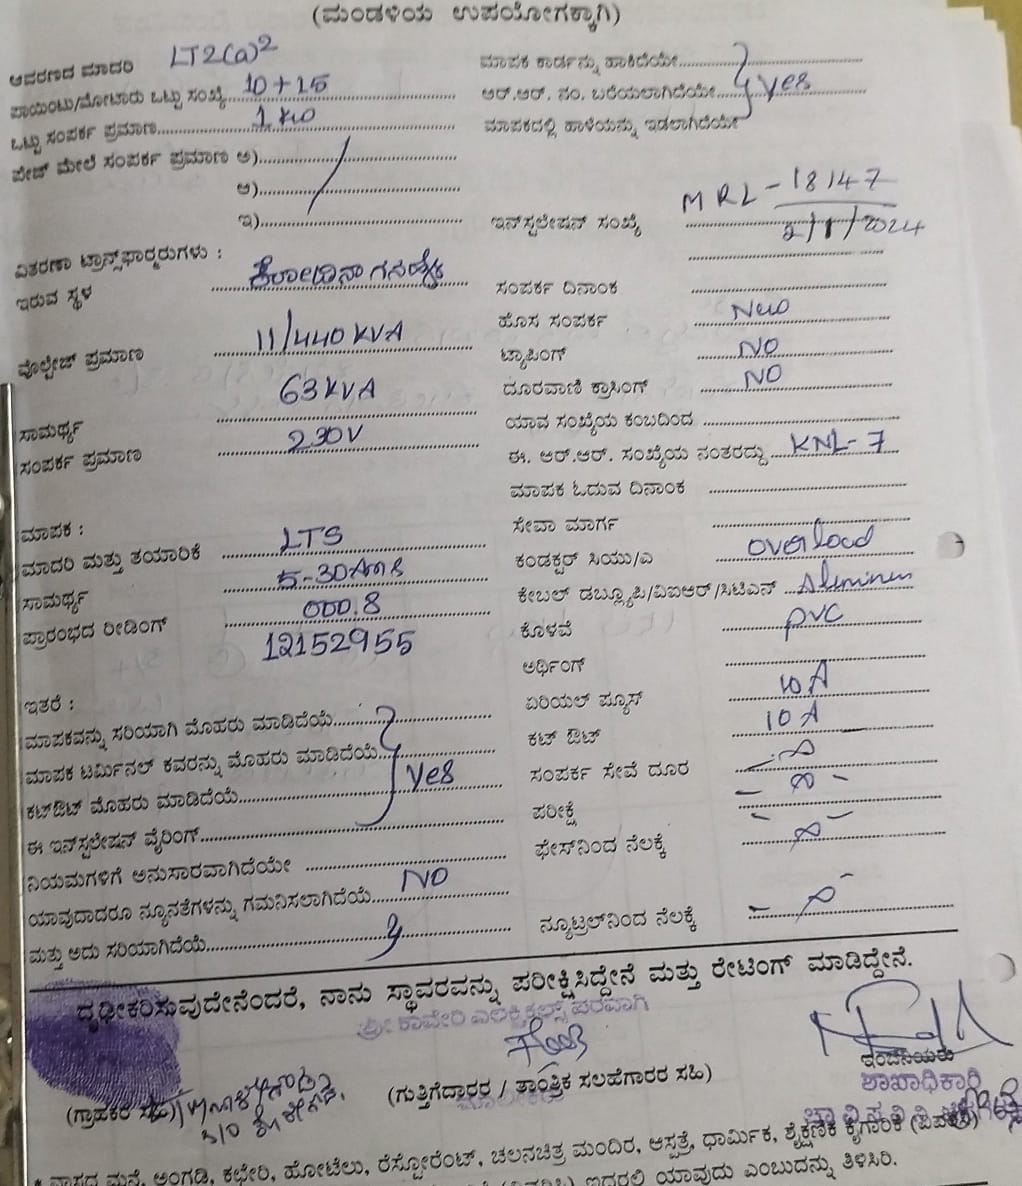 (ಮಂಡಳಿಯ ಉಪಯೋಗಕ್ಕಾಗಿ)
ಆವರಣದ ಮಾದರಿ LT2(a)2
ಪಾಯಿಂಟು/ಮೋಟಾರು ಒಟ್ಟು ಸಂಖ್ಯೆ 10+15
ಒಟ್ಟು ಸಂಪರ್ಕ ಪ್ರಮಾಣ 1 KW
ಪೇಜ್ ಮೇಲೆ ಸಂಪರ್ಕ ಪ್ರಮಾಣ ಅ)
ಆ)
ಇ)
ವಿತರಣಾ ಟ್ರಾನ್ಸ್‌ಫಾರ್ಮರುಗಳು :
ಇರುವ ಸ್ಥಳ
ವೊಲ್ಟೇಜ್ ಪ್ರಮಾಣ 11/440 KVA
ಸಾಮರ್ಥ್ಯ 63 KVA
ಸಂಪರ್ಕ ಪ್ರಮಾಣ 230V
ಮಾಪಕ :
ಮಾದರಿ ಮತ್ತು ತಯಾರಿಕೆ LTS
ಸಾಮರ್ಥ್ಯ 5-30Ams
ಪ್ರಾರಂಭದ ರೀಡಿಂಗ್ 000.8
12152955
ಇತರೆ :
ಮಾಪಕವನ್ನು ಸರಿಯಾಗಿ ಮೊಹರು ಮಾಡಿದೆಯೆ
ಮಾಪಕ ಟರ್ಮಿನಲ್ ಕವರನ್ನು ಮೊಹರು ಮಾಡಿದೆಯೆ
ಕಟ್‌ಔಟ್ ಮೊಹರು ಮಾಡಿದೆಯೆ yes
ಈ ಇನ್‌ಸ್ಟಲೇಷನ್ ವೈರಿಂಗ್
ನಿಯಮಗಳಿಗೆ ಅನುಸಾರವಾಗಿದೆಯೇ
ಯಾವುದಾದರೂ ನ್ಯೂನತೆಗಳನ್ನು ಗಮನಿಸಲಾಗಿದೆಯೆ NO
ಮತ್ತು ಅದು ಸರಿಯಾಗಿದೆಯೆ y
ಮಾಪಕ ಕಾರ್ಡನ್ನು ಹಾಕಿದೆಯೇ
ಆರ್.ಆರ್. ನಂ. ಬರೆಯಲಾಗಿದೆಯೇ yes
ಮಾಪಕದಲ್ಲಿ ಹಾಳೆಯನ್ನು ಇಡಲಾಗಿದೆಯೇ
MRL-18147
ಇನ್‌ಸ್ಟಲೇಷನ್ ಸಂಖ್ಯೆ 2/1/2024
ಸಂಪರ್ಕ ದಿನಾಂಕ
ಹೊಸ ಸಂಪರ್ಕ New
ಟ್ಯಾಪಿಂಗ್ NO
ದೂರವಾಣಿ ಕ್ರಾಸಿಂಗ್ NO
ಯಾವ ಸಂಖ್ಯೆಯ ಕಂಬದಿಂದ
ಈ. ಆರ್.ಆರ್. ಸಂಖ್ಯೆಯ ನಂತರದ್ದು KNL-7
ಮಾಪಕ ಓದುವ ದಿನಾಂಕ
ಸೇವಾ ಮಾರ್ಗ
ಕಂಡಕ್ಟರ್ ಸಿಯು/ಎ overload
ಕೇಬಲ್ ಡಬ್ಲ್ಯೂಪಿ/ವಿಐಆರ್/ಸಿಟಿಎಸ್ Aluminem
ಕೊಳವೆ pvc
ಅರ್ಥಿಂಗ್
ಏರಿಯಲ್ ಪ್ಯೂಸ್ 10 A
ಕಟ್ ಔಟ್ 10 A
ಸಂಪರ್ಕ ಸೇವೆ ದೂರ
ಪರೀಕ್ಷೆ
ಫೇಸ್‌ನಿಂದ ನೆಲಕ್ಕೆ
ನ್ಯೂಟ್ರಲ್‌ನಿಂದ ನೆಲಕ್ಕೆ
ದೃಢೀಕರಿಸುವುದೇನೆಂದರೆ, ನಾನು ಸ್ಥಾವರವನ್ನು ಪರೀಕ್ಷಿಸಿದ್ದೇನೆ ಮತ್ತು ರೇಟಿಂಗ್ ಮಾಡಿದ್ದೇನೆ.
ಶ್ರೀ ಕಾವೇರಿ ಎಲೆಕ್ಟ್ರಿಕಲ್ಸ್ ಪರವಾಗಿ
ಇಂಜಿನಿಯರು
(ಗ್ರಾಹಕರ ಸಹಿ) (ಗುತ್ತಿಗೆದಾರರ / ತಾಂತ್ರಿಕ ಸಲಹೆಗಾರರ ಸಹಿ) ಶಾಖಾಧಿಕಾರಿ
ಮಾಲೀಕರು
* ವಾಸದ ಮನೆ, ಅಂಗಡಿ, ಕಛೇರಿ, ಹೋಟೆಲು, ರೆಸ್ಟೋರೆಂಟ್, ಚಲನಚಿತ್ರ ಮಂದಿರ, ಆಸ್ಪತ್ರೆ, ಧಾರ್ಮಿಕ, ಶೈಕ್ಷಣಿಕ ಕೈಗಾರಿಕೆ
ಇದರಲ್ಲಿ ಯಾವುದು ಎಂಬುದನ್ನು ತಿಳಿಸಿರಿ.